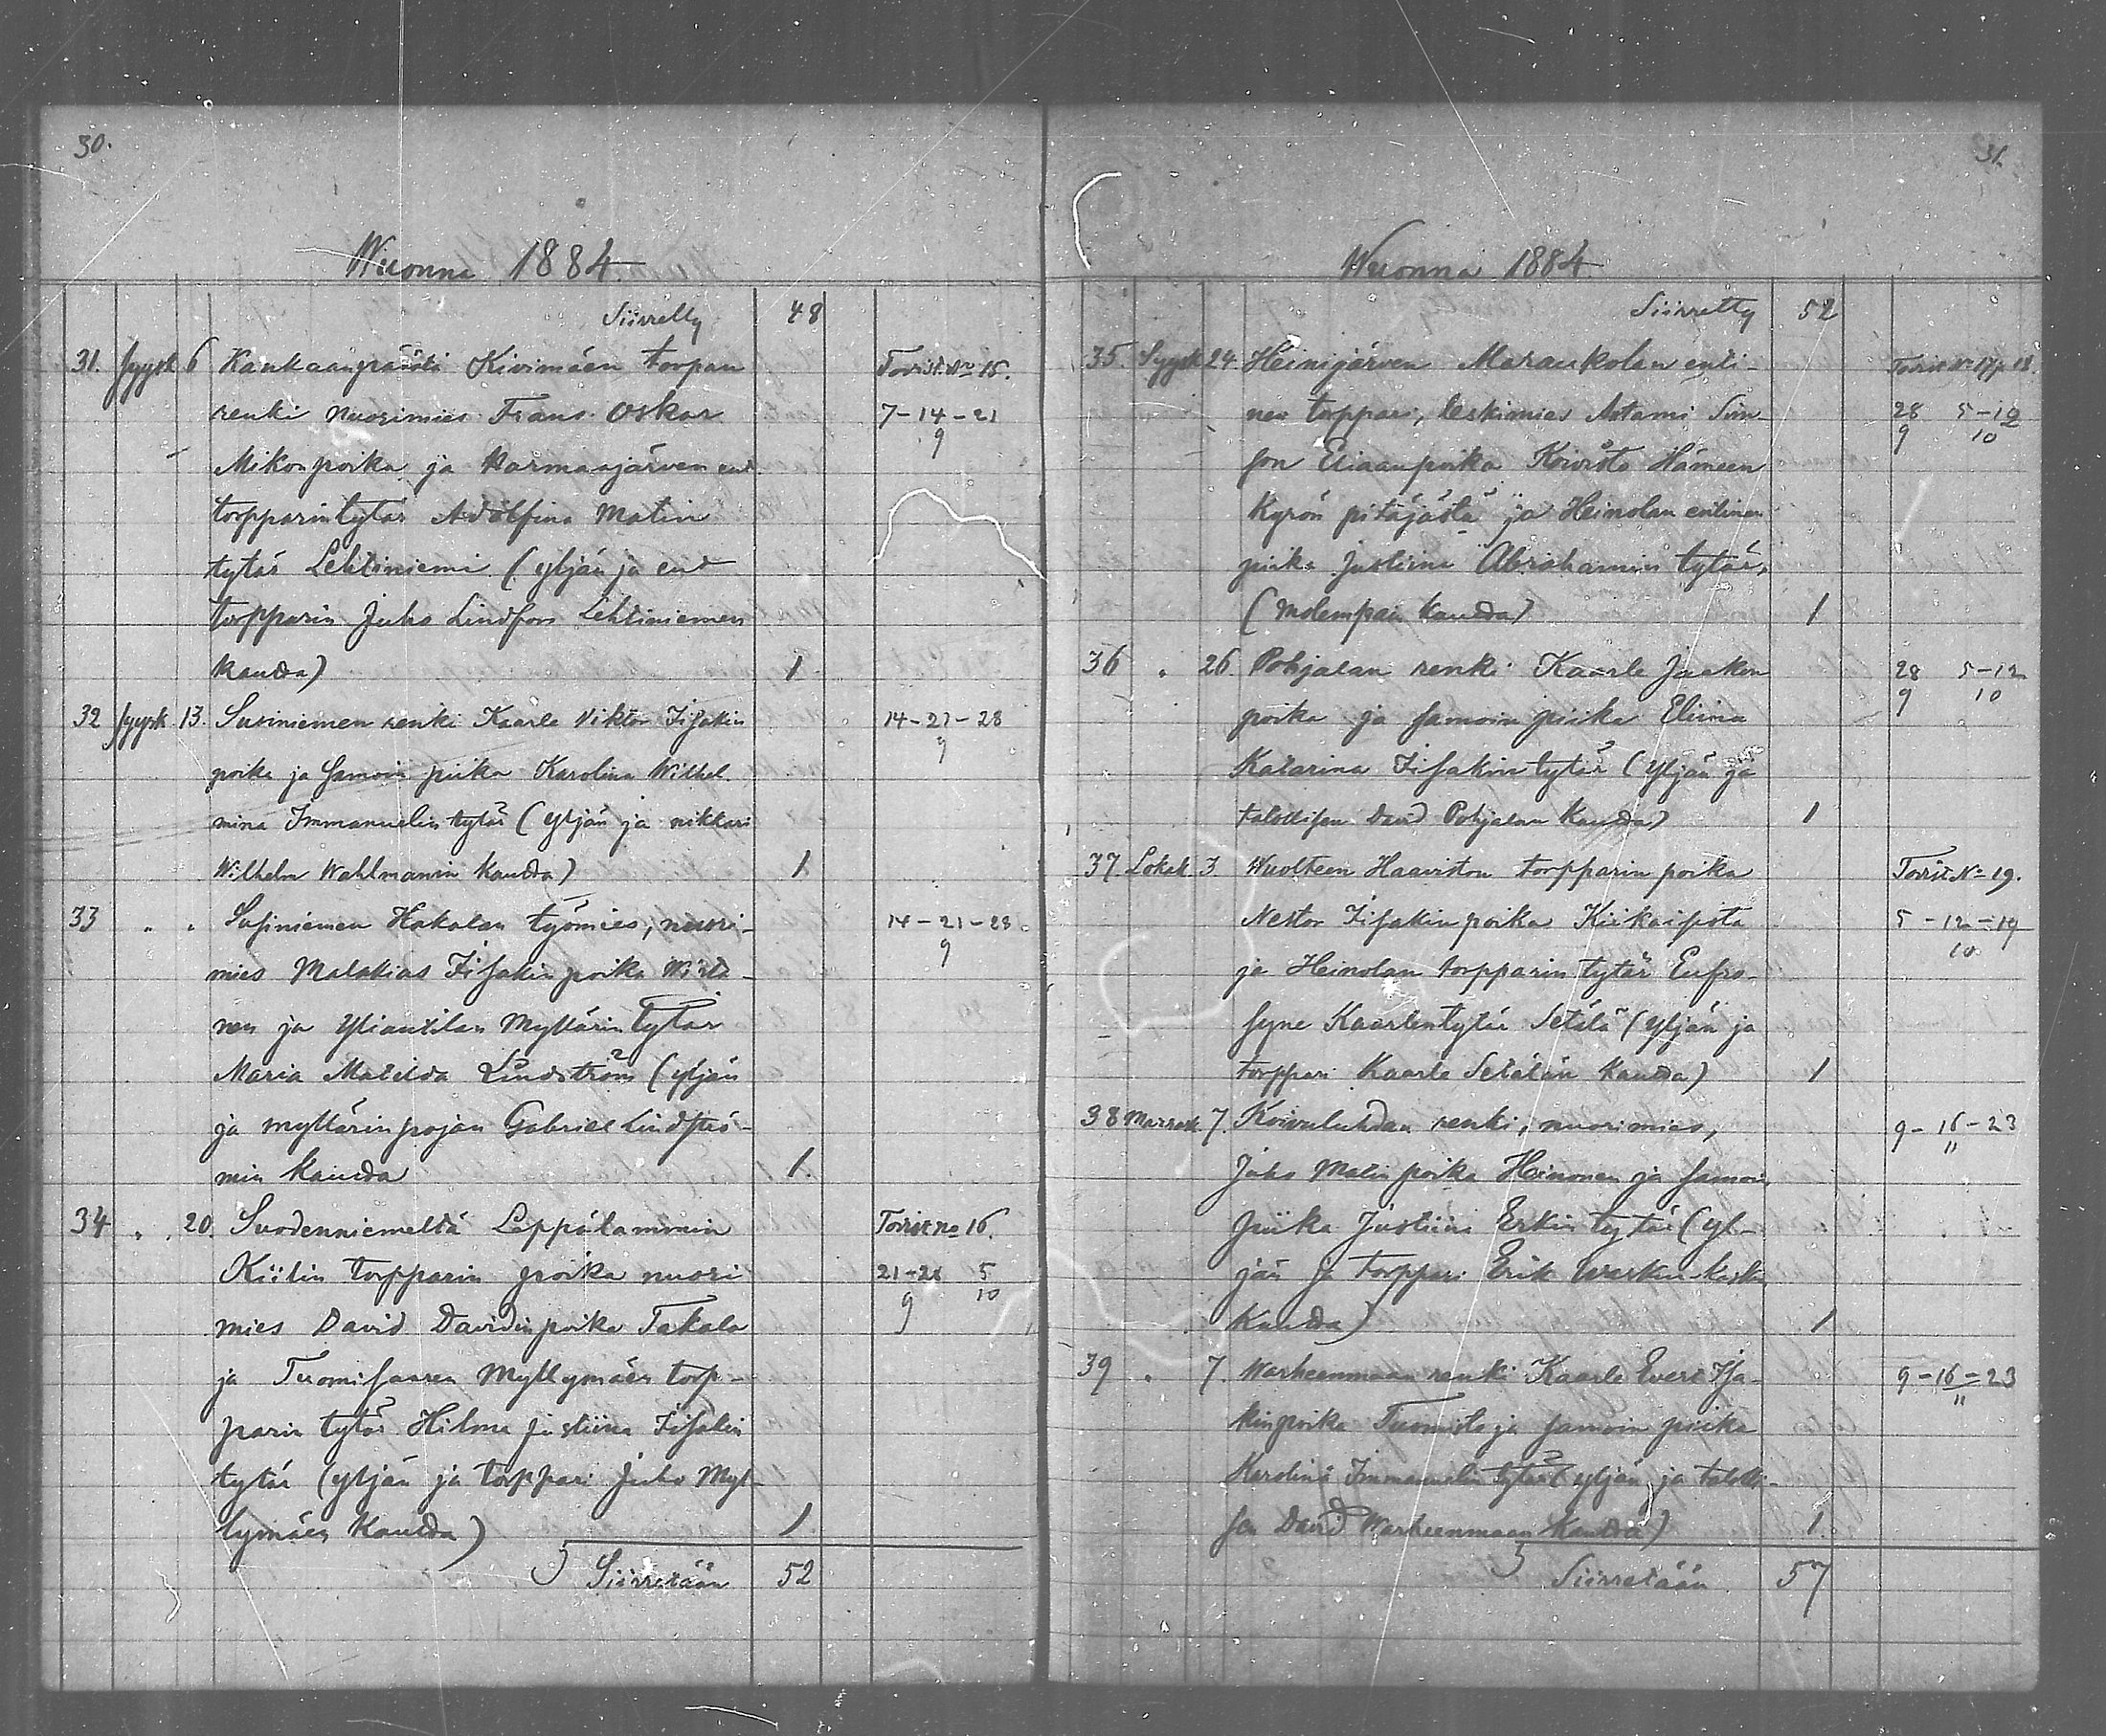 30.
Wuonna 1884
Siirretty 48
31. Syysk 6 Kankaanpäästä Kivimäen torpan Todist. No 15.
renki nuorimies Frans Oskar 7-14-21
Mikonpoika ja Karmasjärven ent 9
torpparintytär Adolfina Matin
tytär Lehtiniemi (yljän ja ent
torpparin Juho Lindfors Lehtiniemen
kautta) 1
32 Syysk 13. Susiniemen renki Kaarle Viktor Iisakin 14-21-28
poika ja samoin piika Karolina Wilhel 9
mina Immanuelin tytär (yljän ja nikkari
Wilhelm Wahlmanin kautta) 1
33 " " Susiniemen Hakalan työmies, nuori- 14-21-28
mies Malakias Iisakin poika Wirta- 9
nen ja Yliantilan Myllärin tytär
Maria Matilda Lindström (yljän
ja myllärinpojan Gabriel Lindströ-
min kautta 1.
34 " 20. Suodenniemeltä Leppälammin Todist. No 16.
Kiilin torpparin poika nuori 21-28 5
mies David Davidinpoika Takala 9 10
ja Tuomisaaren Myllymäen torp-
parin tytär Hilma Justiina Iisakin
tytär (yljän ja torppari Juho Myl-
lymäen kautta) 1
Siirretään 52
31.
Wuonna 1884
Siirretty 52
35. Syysk 24. Heinijärven Maraukolan enti- Todist No 17 ja 18.
nen torppari, leskimies Antami Sim- 28 5-12
son Eliaanpoika Koivisto Hämeen 9 10
Kyrön pitäjästä ja Heinolan entinen
piika Justiina Abrahamin tytär,
(Molempain kautta) 1
36 " 26. Pohjalan renki Kaarle Jaakon 28 5-12
poika ja samoin piika Eliina 9 10
Katarina Iisakin tytär (Yljän ja
talollisen David Pohjalan kautta) 1
37 Lokak 3 Wuolteen Haaviston torpparin poika Todist No 19.
Nestor Iisakin poika Kiikaisista 5-12-19
ja Heinolan torpparin tytär Eufro- 10
syne Kaarlentytär Setälä (yljän ja
torppari Kaarle Setälän kautta) 1
38 Marrask 7. Koivuluhdan renki, nuorimies, 9-16-23
Juho Matin poika Heinonen ja samoin 11
piika Justiina Erkin tytär (yl-
jän ja torppari Erik
kautta) 1
39 " 7. Warheenmaan renki Kaarle Evert Isa- 9-16-23
kinpoika Tuomisto ja samoin piika 11
Karolina Immanuelin tytär (yljän ja talolli-
sen David Warheenmaan kautta) 1.
Siirretään 57